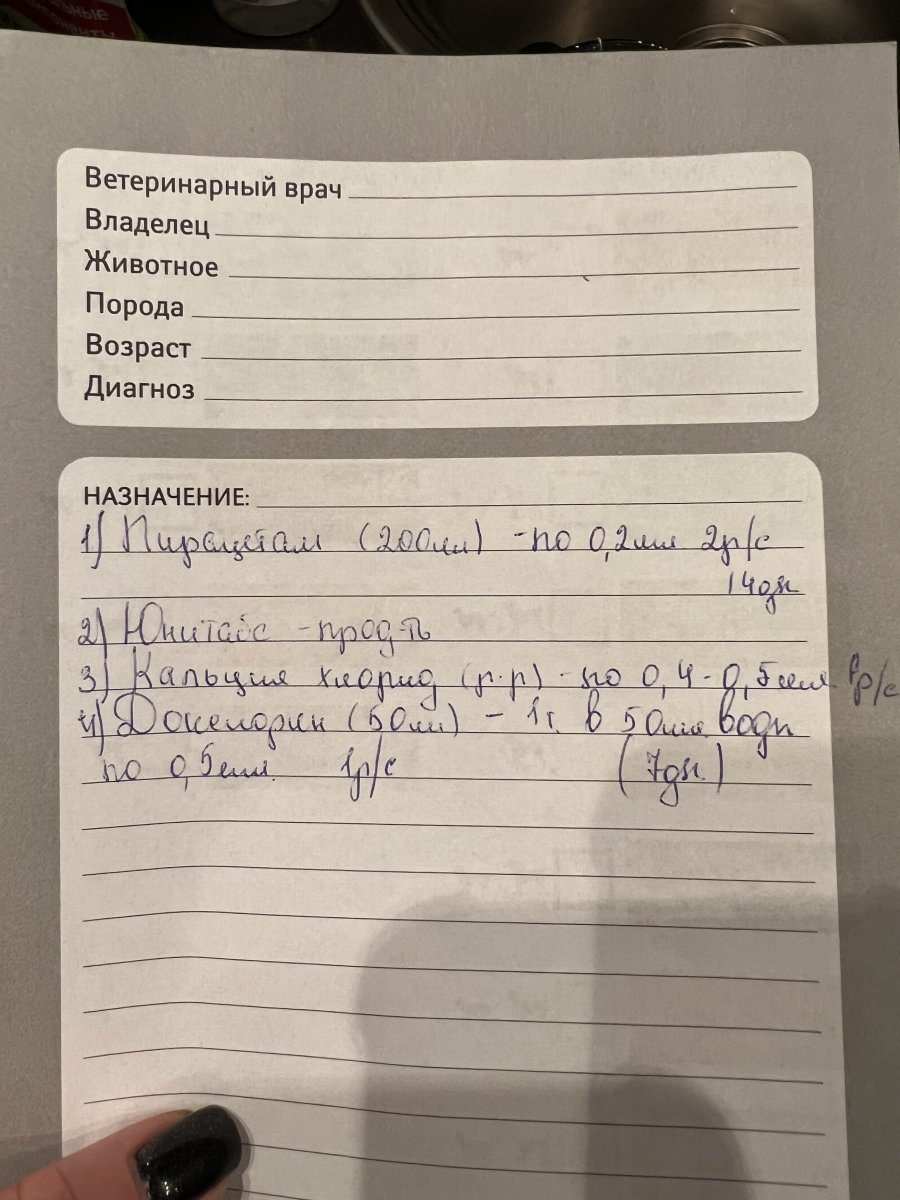 льные
компоненты
Ветеринарный врач
Владелец
Животное
Порода
Возраст
Диагноз
НАЗНАЧЕНИЕ:
1) Пирацетам (200мл) - по 0,2мл 2р/с
14дн
2) Юнитабс - прод-ть
3) Кальция хлорид (р-р) - по 0,4-0,5мл 1р/с
4) (50мл) - 1г. в 50мл воды
по 0,5мл. 1р/с (7дн.)